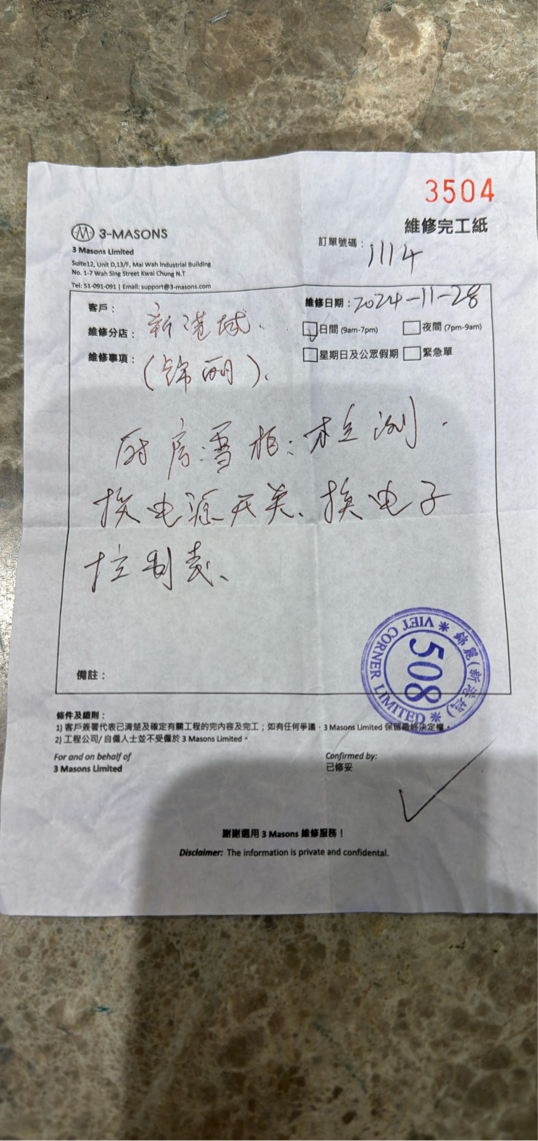 3504
維修完工紙
訂單號碼：1114
3-MASONS
3 Masons Limited
Suite12, Unit D,13/F, Mai Wah Industrial Building
No. 1-7 Wah Sing Street Kwai Chung N.T
Tel: 51-091-091 | Email: support@3-masons.com
客戶：
維修日期：2024-11-28
維修分店：新港城.
日間 (9am-7pm) 夜間 (7pm-9am)
維修事項：(錦丽).
星期日及公眾假期 緊急單
厨房雪柜：检测.
换电源开关、换电子
控制表、
VIET CORNER LIMITED
508
備註：
條件及細則：
1) 客戶簽署代表已清楚及確定有關工程的完內容及完工；如有任何爭議，3 Masons Limited 保留最終決定權。
2) 工程公司/ 自僱人士並不受僱於 3 Masons Limited。
For and on behalf of
3 Masons Limited
Confirmed by:
已修妥
謝謝選用 3 Masons 維修服務！
Disclaimer: The information is private and confidential.